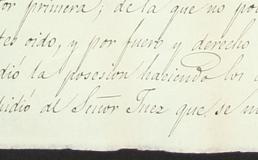 or primera; de la que no po
tes oido, y por fuero y derecho
dió la posesion habiendo los
pidió al Señor Juez que se m